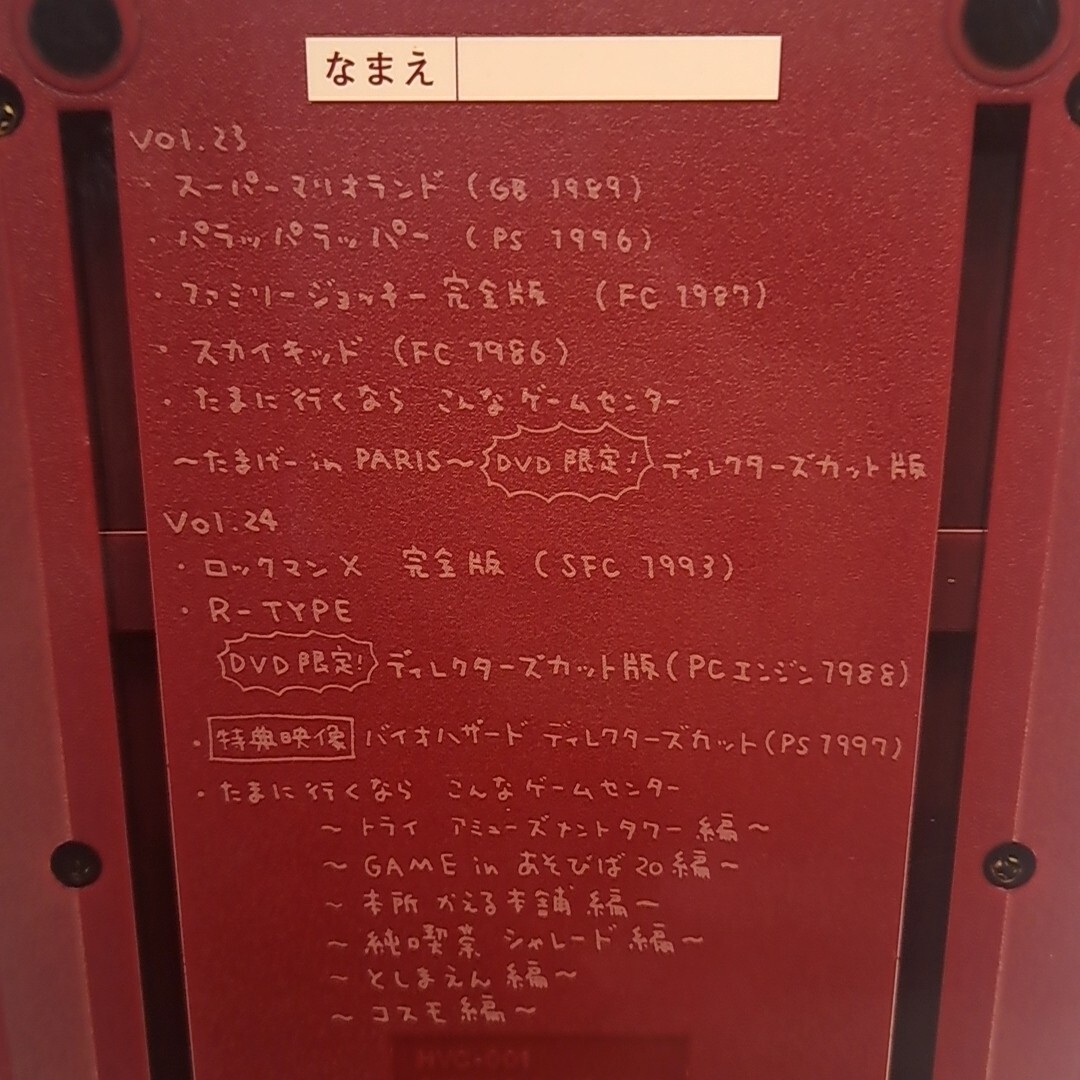 なまえ
Vol.23
・スーパーマリオランド (GB 1989)
・パラッパラッパー (PS 1996)
・ファミリージョッキー 完全版 (FC 1987)
・スカイキッド (FC 1986)
・たまに行くなら こんなゲームセンター
～たまげー in PARIS～ DVD限定! ディレクターズカット版
Vol.24
・ロックマンX 完全版 (SFC 1993)
・R-TYPE
DVD限定! ディレクターズカット版(PCエンジン1988)
・特典映像 バイオハザード ディレクターズカット(PS1997)
・たまに行くなら こんなゲームセンター
～トライ アミューズメントタワー編～
～GAME in あそびば20編～
～本所 かえる本舗 編～
～純喫茶 シャレード 編～
～としまえん編～
～コスモ編～
HVC-001